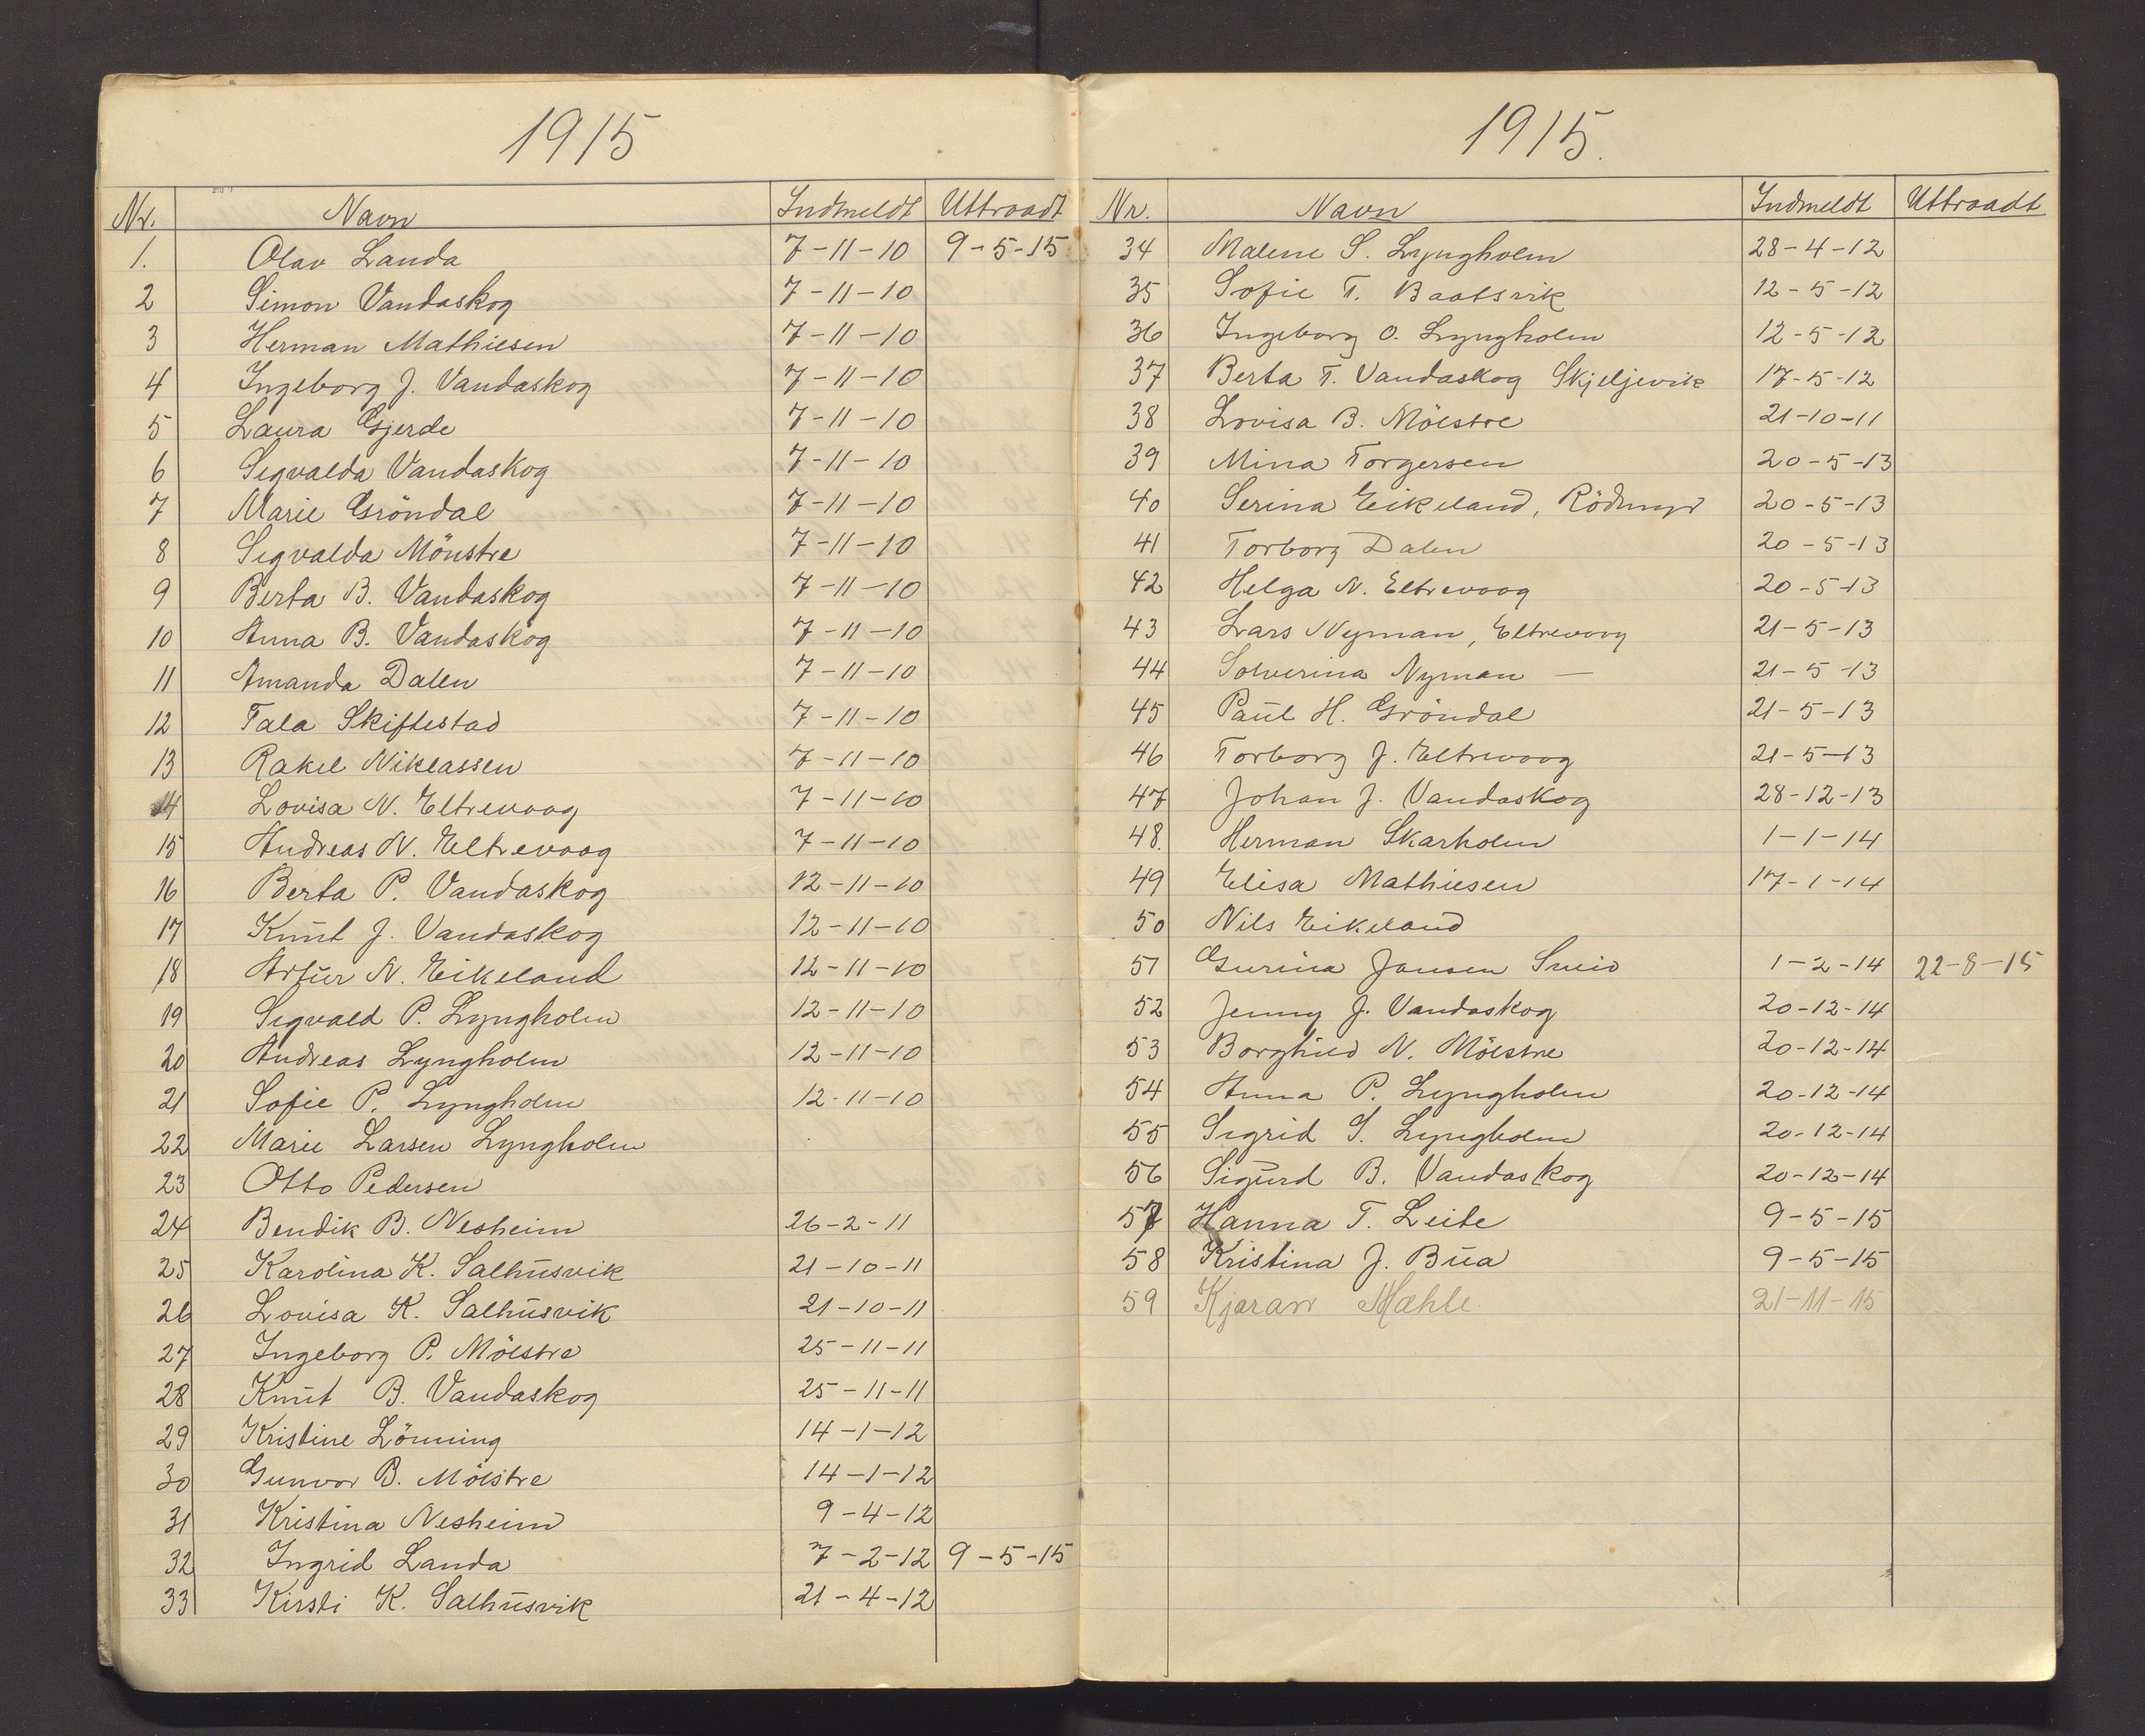 1915
Nr. Navn Indmeldt Uttraadt
1. Olav Landa 7-11-10 9-5-15
2 Simon Vandaskog 7-11-10
3 Herman Mathiesen 7-11-10
4 Ingeborg J. Vandaskog 7-11-10
5 Laura Gjerde 7-11-10
6 Sigvalda Vandaskog 7-11-10
7 Marie Gröndal 7-11-10
8 Sigvalda Mönstre 7-11-10
9 Berta B. Vandaskog 7-11-10
10 Anna B. Vandaskog 7-11-10
11 Amanda Dalen 7-11-10
12 Tala Skiftestad 7-11-10
13 Rakel Niklassen 7-11-10
14 Lovisa N. Eltrevaag 7-11-10
15 Andreas N. Eltrevaag 7-11-10
16 Berta P. Vandaskog 12-11-10
17 Knut J. Vandaskog 12-11-10
18 Artur N. Eikeland 12-11-10
19 Sigvald P. Lyngholm 12-11-10
20 Andreas Lyngholm 12-11-10
21 Sofie P. Lyngholm 12-11-10
22 Marie Larsen Lyngholm
23 Otto Pedersen
24 Bendik B. Nesheim 26-2-11
25 Karolina K. Salhusvik 21-10-11
26 Lovisa K. Salhusvik 21-10-11
27 Ingeborg P. Mölstre 25-11-11
28 Knut B. Vandaskog 25-11-11
29 Kristine Lönning 14-1-12
30 Gunvor B. Mölstre 14-1-12
31 Kristina Nesheim 9-4-12
32 Ingrid Landa 7-2-12 9-5-15
33 Kirsti K. Salhusvik 21-4-12
1915.
Nr. Navn Indmeldt Uttraadt
34 Malene S. Lyngholm 28-4-12
35 Sofie T. Baatsvik 12-5-12
36 Ingeborg O. Lyngholm 12-5-12
37 Berta T. Vandaskog Skjeljevik 17-5-12
38 Lovisa B. Mölstre 21-10-11
39 Mina Torgersen 20-5-13
40 Serina Eikeland, Rödmyr 20-5-13
41 Torborg Dalen 20-5-13
42 Helga N. Eltrevaag 20-5-13
43 Lars Nyman, Eltrevaag 21-5-13
44 Solverina Nyman — 21-5-13
45 Paul H. Gröndal 21-5-13
46 Torborg J. Eltrevaag 21-5-13
47 Johan J. Vandaskog 28-12-13
48. Herman Skarholm 1-1-14
49 Elisa Mathiesen 17-1-14
50 Nils Eikeland
51 Gurina Jansen Sveio 1-2-14 22-8-15
52 Jenny J. Vandaskog 20-12-14
53 Borghild N. Mölstre 20-12-14
54 Anna P. Lyngholm 20-12-14
55 Sigrid S. Lyngholm 20-12-14
56 Sigurd B. Vandaskog 20-12-14
57 Hanna T. Leite 9-5-15
58 Kristina J. Bua 9-5-15
59 Kjaran Mæhle 21-11-15